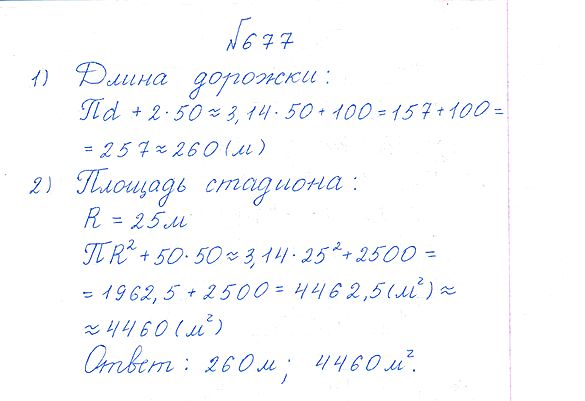 №677
1) Длина дорожки:
Пd + 2·50 ≈ 3,14·50 + 100 = 157 + 100 =
= 257 ≈ 260 (м)
2) Площадь стадиона:
R = 25м
ПR² + 50·50 ≈ 3,14·25² + 2500 =
= 1962,5 + 2500 = 4462,5 (м²) ≈
≈ 4460 (м²)
Ответ: 260м; 4460м².